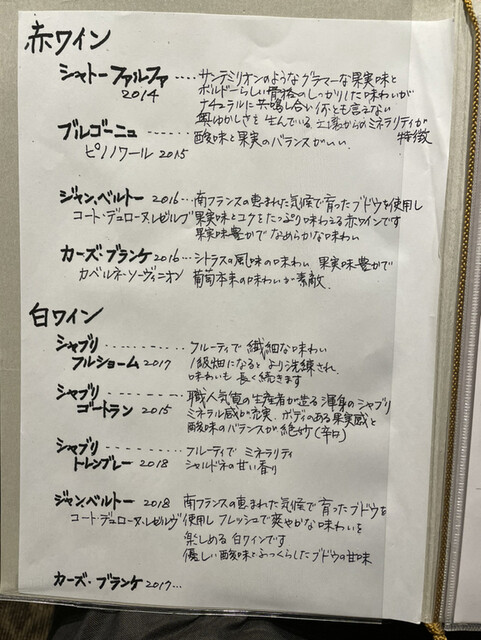 赤ワイン
シャトー ファルファ ････ サンテミリオンのようなグラマーな果実味と
2014 ボルドーらしい骨格のしっかりした味わいが
ナチュラルに共鳴し合い何とも言えない
奥ゆかしさを生んでいる 土壌からのミネラリティが
特徴
ブルゴーニュ ------- 酸味と果実のバランスがいい.
ピノノワール 2015
ジャン.ベルトー 2016 --- 南フランスの恵まれた気候で育ったブドウを使用し
コート・デュローヌ・レゼルブ 果実味とコクをたっぷり味わえる赤ワインです
果実味豊かで なめらかな味わい
カーズ・ブランケ 2016 --- シトラスの風味の味わい 果実味豊かで
カベルネ・ソーヴィニオン 葡萄本来の味わいが素敵.
白ワイン
シャブリ ----------- フルーティで 繊細な味わい
フルショーム 2017 1級畑になると より洗練され.
味わいも 長く続きます
シャブリ ----------- 職人気質の生産者が造る 渾身のシャブリ
ゴートラン 2015 ミネラル感が充実、ボディのある果実感と
酸味のバランスが絶妙(辛口)
シャブリ ----------- フルーティで ミネラリティ
トレンブレー 2018 シャルドネの甘い香り
ジャン.ベルトー 2018 南フランスの恵まれた気候で 育ったブドウを
コート・デュローヌ・レゼルヴ 使用し フレッシュで爽やかな味わいを
楽しめる 白ワインです
優しい酸味とふっくらしたブドウの甘味
カーズ・ブランケ 2017...